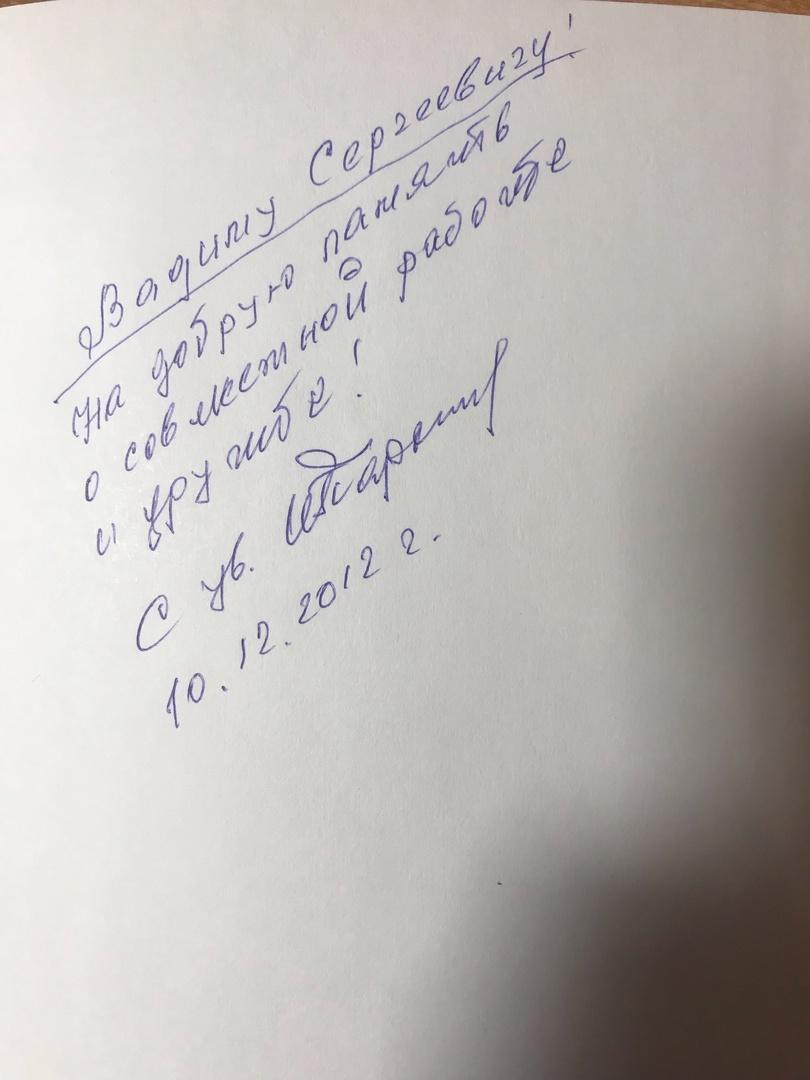 Вадиму Сергеевичу!
На добрую память
о совместной работе
и дружбе!
С ув.
10.12.2012 г.